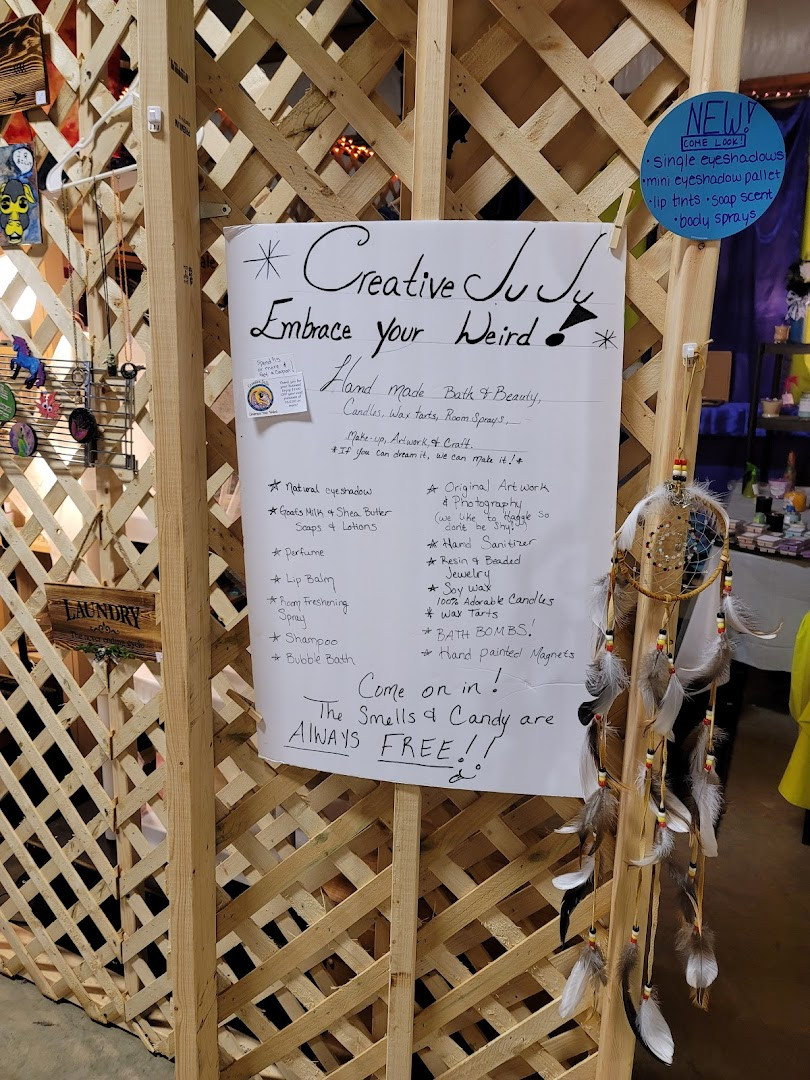 NEW!
COME LOOK!
• single eyeshadows
• mini eyeshadow pallet
• lip tints • soap scent
• body sprays
Creative JuJu
Embrace your Weird!
Hand made Bath & Beauty,
Candles, Wax tarts, Room Sprays,
Make-up, Artwork, & Craft.
*If you can dream it, we can make it!*
* Natural eyeshadow
* Goats Milk & Shea Butter
Soaps & Lotions
* Perfume
* Lip Balm
* Room Freshening
Spray
* Shampoo
* Bubble Bath
* Original Artwork
& Photography
(we like to Haggle so
dont be shy!)
* Hand Sanitizer
* Resin & Beaded
Jewelry
* Soy Wax
100% Adorable Candles
* Wax Tarts
* BATH BOMBS!
* Hand painted Magnets
Come on in!
The Smells & Candy are
AlWAYS FREE!!
LAUNDRY